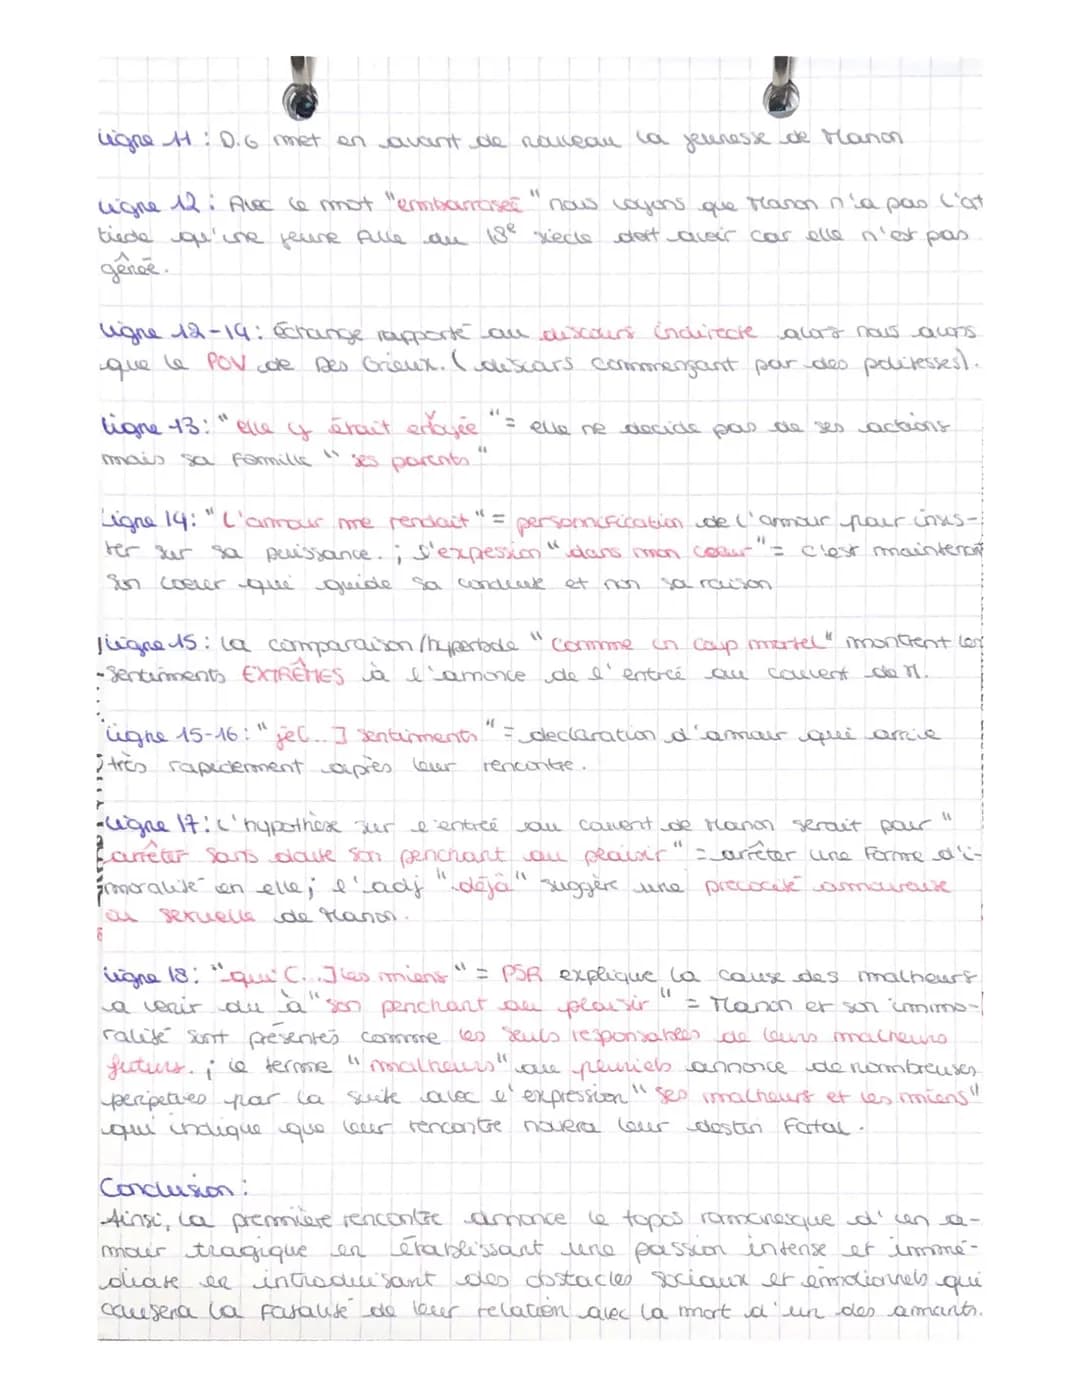 Ligne 11 : D.G met en avant de nouveau la jeunesse de Manon
Ligne 12 : Avec le mot "embarrassée" nous voyons que Manon n'a pas l'at
titude qu'une jeune fille du 18e siècle doit avoir car elle n'est pas
gênée.
Ligne 12-14 : Échange rapporté au discours indirecte alors nous avons
que le POV de Des Grieux. (discours commençant par des politesses).
Ligne 13 : "elle y était envoyée" = elle ne decide pas de ses actions
mais sa famille "ses parents"
Ligne 14 : "L'amour me rendait" = personnification de l'amour pour insis-
ter sur sa puissance. ; l'expession "dans mon coeur" = c'est maintenant
son coeur qui guide sa conduite et non sa raison
Ligne 15 : La comparaison/hyperbole "comme un coup mortel" montrent les
sentiments EXTRÊMES à l'annonce de l'entrée au couvent de M.
Ligne 15-16 : "je[...] sentiments" = declaration d'amour qui arrive
très rapidement après leur rencontre.
Ligne 17 : L'hypothèse sur l'entrée au couvent de Manon serait pour "
arrêter sans doute son penchant au plaisir" = arrêter une forme d'i-
mmoralité en elle ; l'adj "déjà" suggère une précocité amoureuse
ou sexuelle de Manon.
Ligne 18 : "qui [...] les miens" = PSR explique la cause des malheurs
a venir du à "son penchant au plaisir" = Manon et son immo-
ralité sont présentés comme les seuls responsables de leurs malheurs
futurs. ; le terme "malheurs" au pluriels annonce de nombreuses
peripeties par la suite avec l'expression "ses malheurs et les miens"
qui indique que leur rencontre nouera leur destin fatal.
Conclusion :
Ainsi, la première rencontre annonce le topos romanesque d'un a-
mour tragique en établissant une passion intense et immé-
diate en introduisant des obstacles sociaux et émotionnels qui
causera la fatalité de leur relation avec la mort d'un des amants.